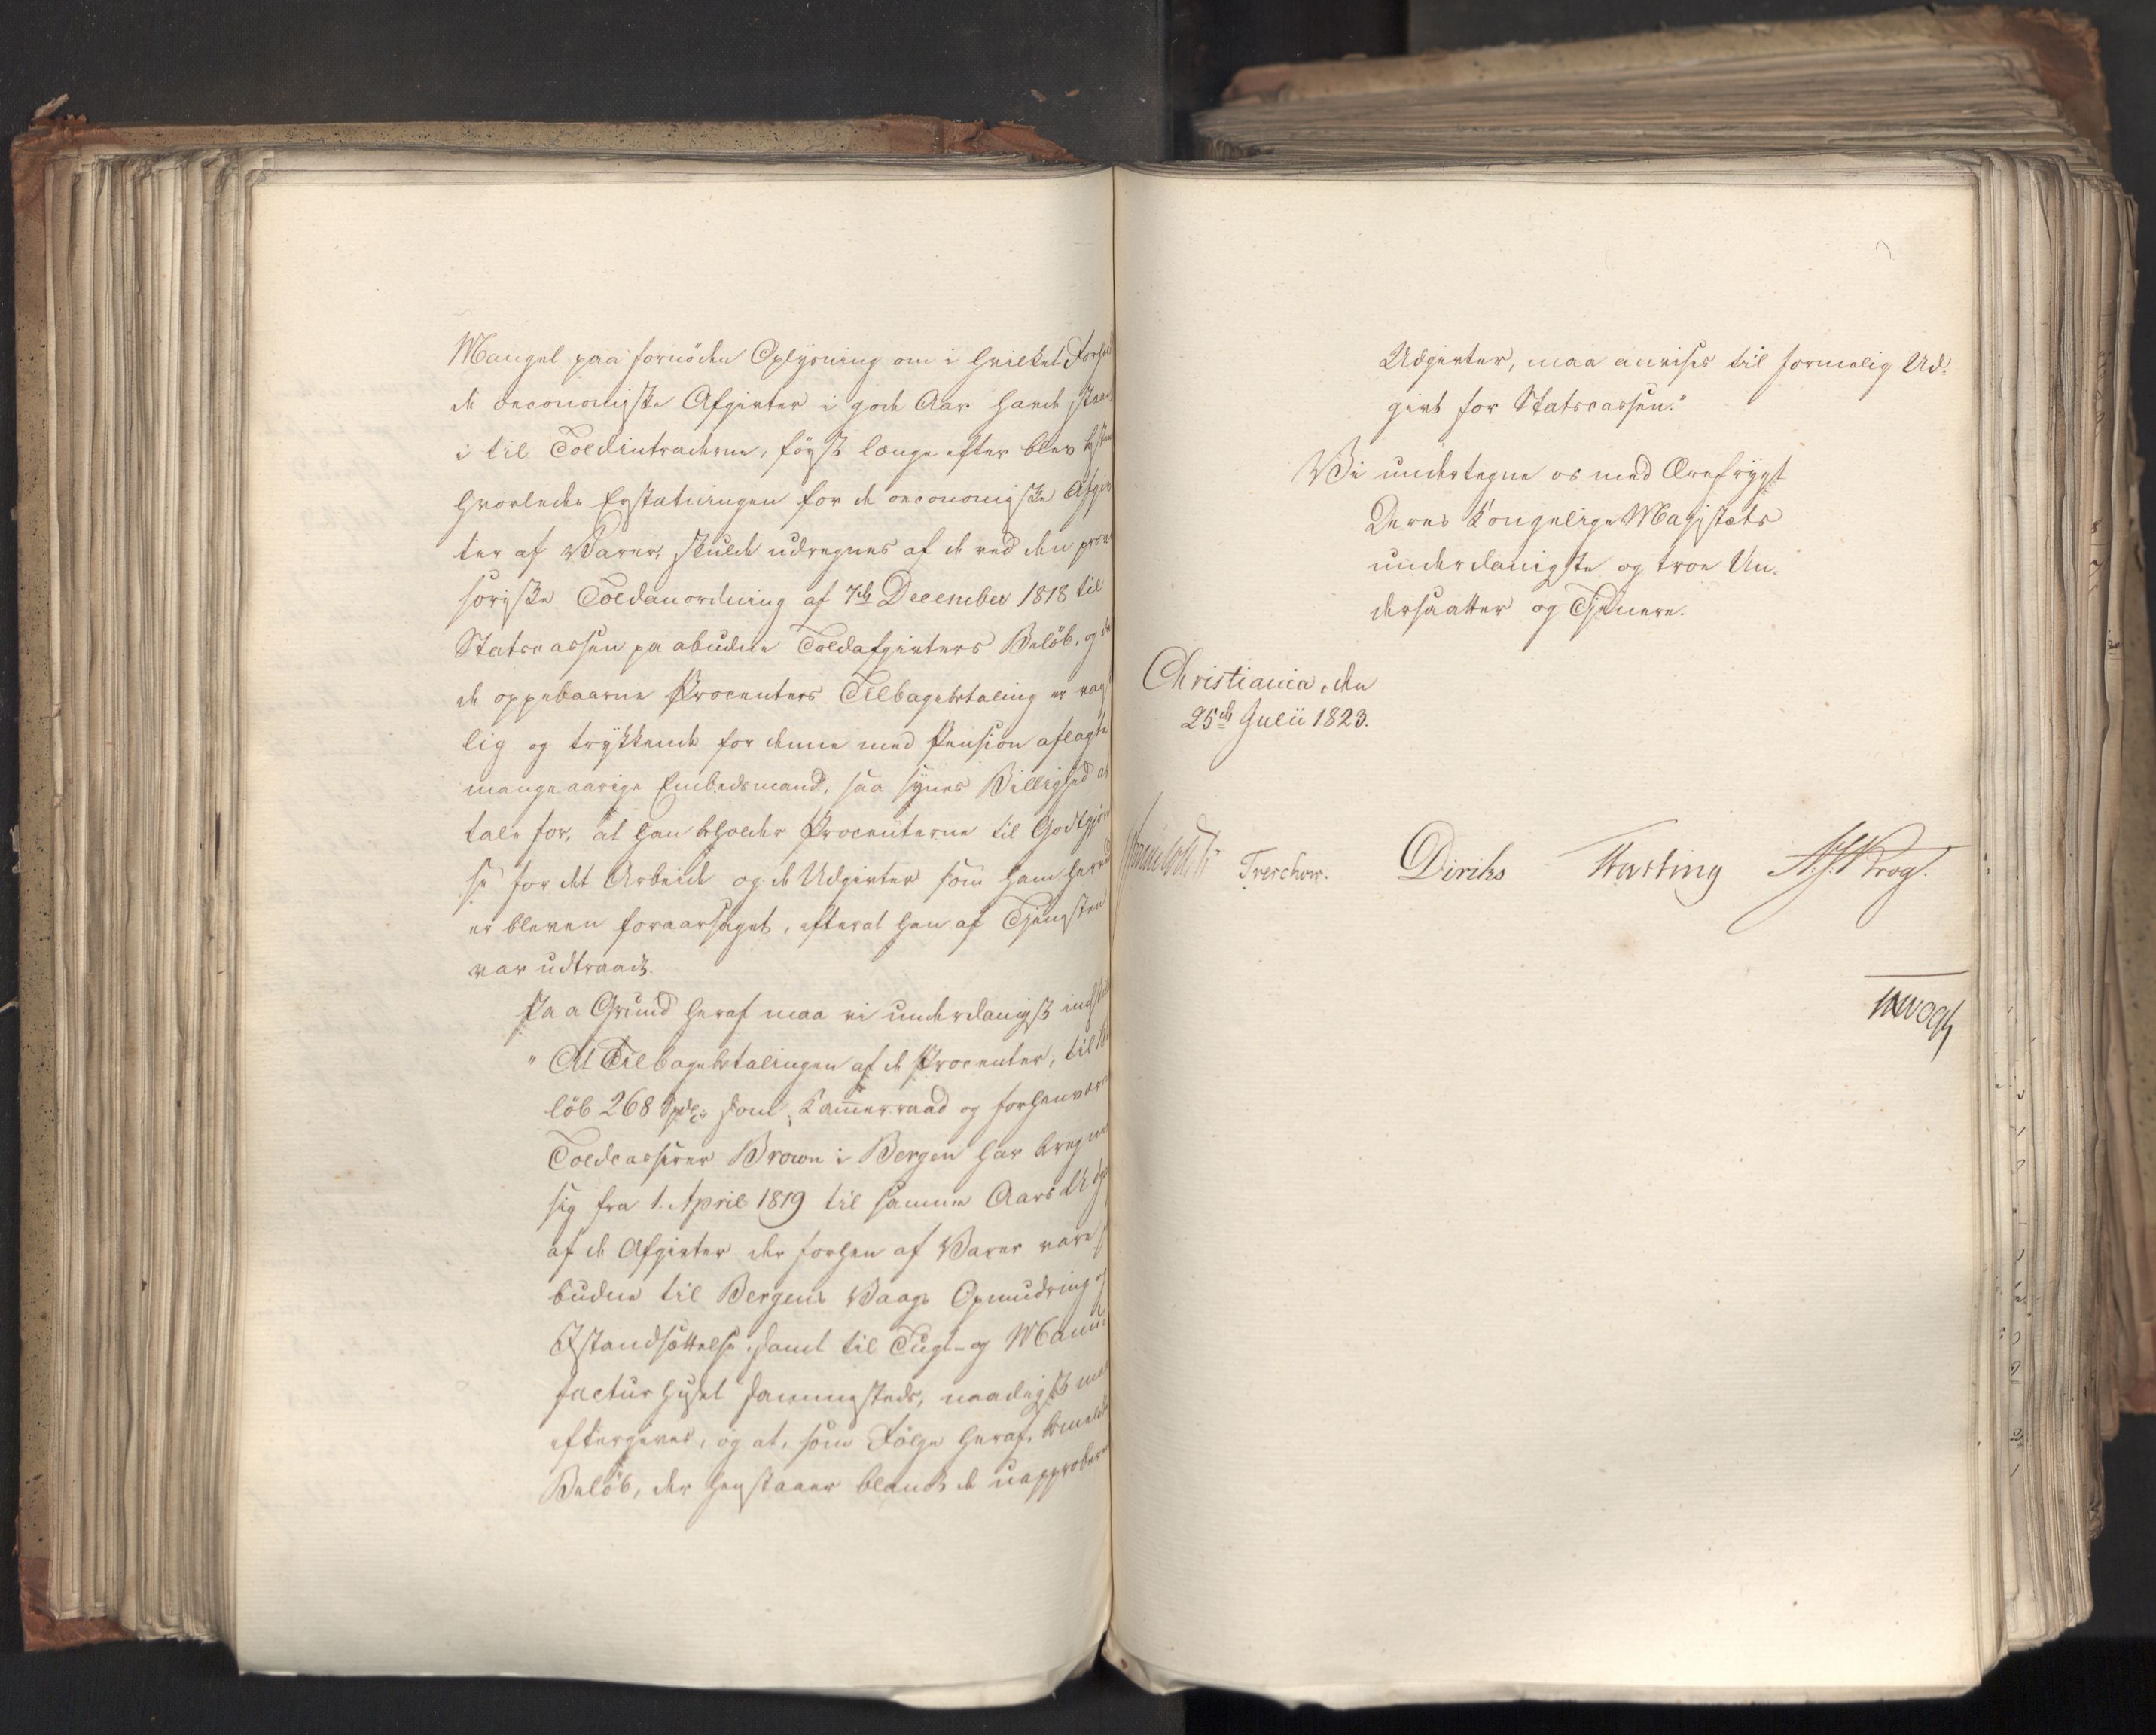 Mangel paa fornöden Oplysning om i hvilket Forho
de oeconomiske Afgivter i gode Aar havde staae
i til Toldintraderne, föyst længe efter blev bestem
hvorledes Erstatningen for de oeconomiske Afgiv
ter af Varer, skulde udregnes af de ved den provi
soriske Toldanordning af 7de December 1818 til
Statscassen paabudne Toldafgivters Belöb, og da
de oppebaarne Procenters Tilbagebetaling er
lig og trykkende for denne med Pension aflagte
mangeaarige Embedsmand, saa synes Billighed at
tale for, at han beholder Procenterne til Godtgjörel
se for det Arbeide og de Udgivter som ham herved
er bleven foraarsaget, efterat han af Tjenesten
var udtraadt.
Paa Grund heraf maa vi underdanigst indstille
"At Tilbagebetalingen af de Procenter, til Be
löb 268 Spdlr som Kammerraad og forhenværen
Toldcasserer Brown i Bergen har beregnet
sig fra 1. April 1819 til samme Aars Udg
af de Afgivter der forhen af Varer vare
budne til Bergens Vaags Opmudring og
Istandsættelse, samt til Tugt- og Manu-
facturhuset sammesteds, naadigst maa
eftergives, og at, som Fölge heraf, bemeldte
Belöb, der henstaaer blandt de uapproberede
Udgivter, maa anvises til formelig Ud-
givt for Statscassen."
Vi undertegne os med Ærefrygt
Deres Kongelige Majestæts
underdanigste og troe Un-
dersaatter og Tjenere.
Christiania, den
25de Julii 1823.
Treschow. Diriks Fasting Krog.